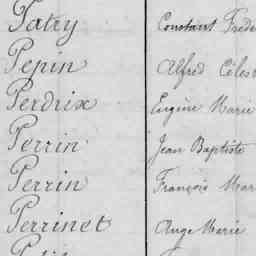 Patry Constant Fréde
Pepin Alfred Célest
Perdrix Eugène Marie
Perrin Jean Baptiste
Perrin François Mar
Perrinet Ange Marie